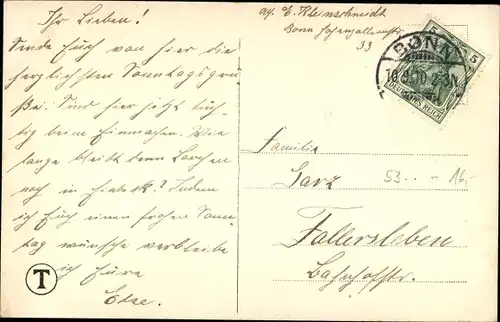 Ihr Lieben!
Sende Euch von hier die
herzlichsten Sonntagsgrü-
ße. Sind hier jetzt tüch-
tig beim Einmachen. Wie
lange bleibt denn Lorchen
noch in
? Indem
ich Euch einen frohen Sonn-
tag wünsche verbleibe
ich Eure
Else.
T
E. Kleinschmidt
Bonn
33
BONN
5 5
DEUTSCHES REICH
Familie
Sarz
Fallersleben
Bahnhofstr.
53.. - 16.-